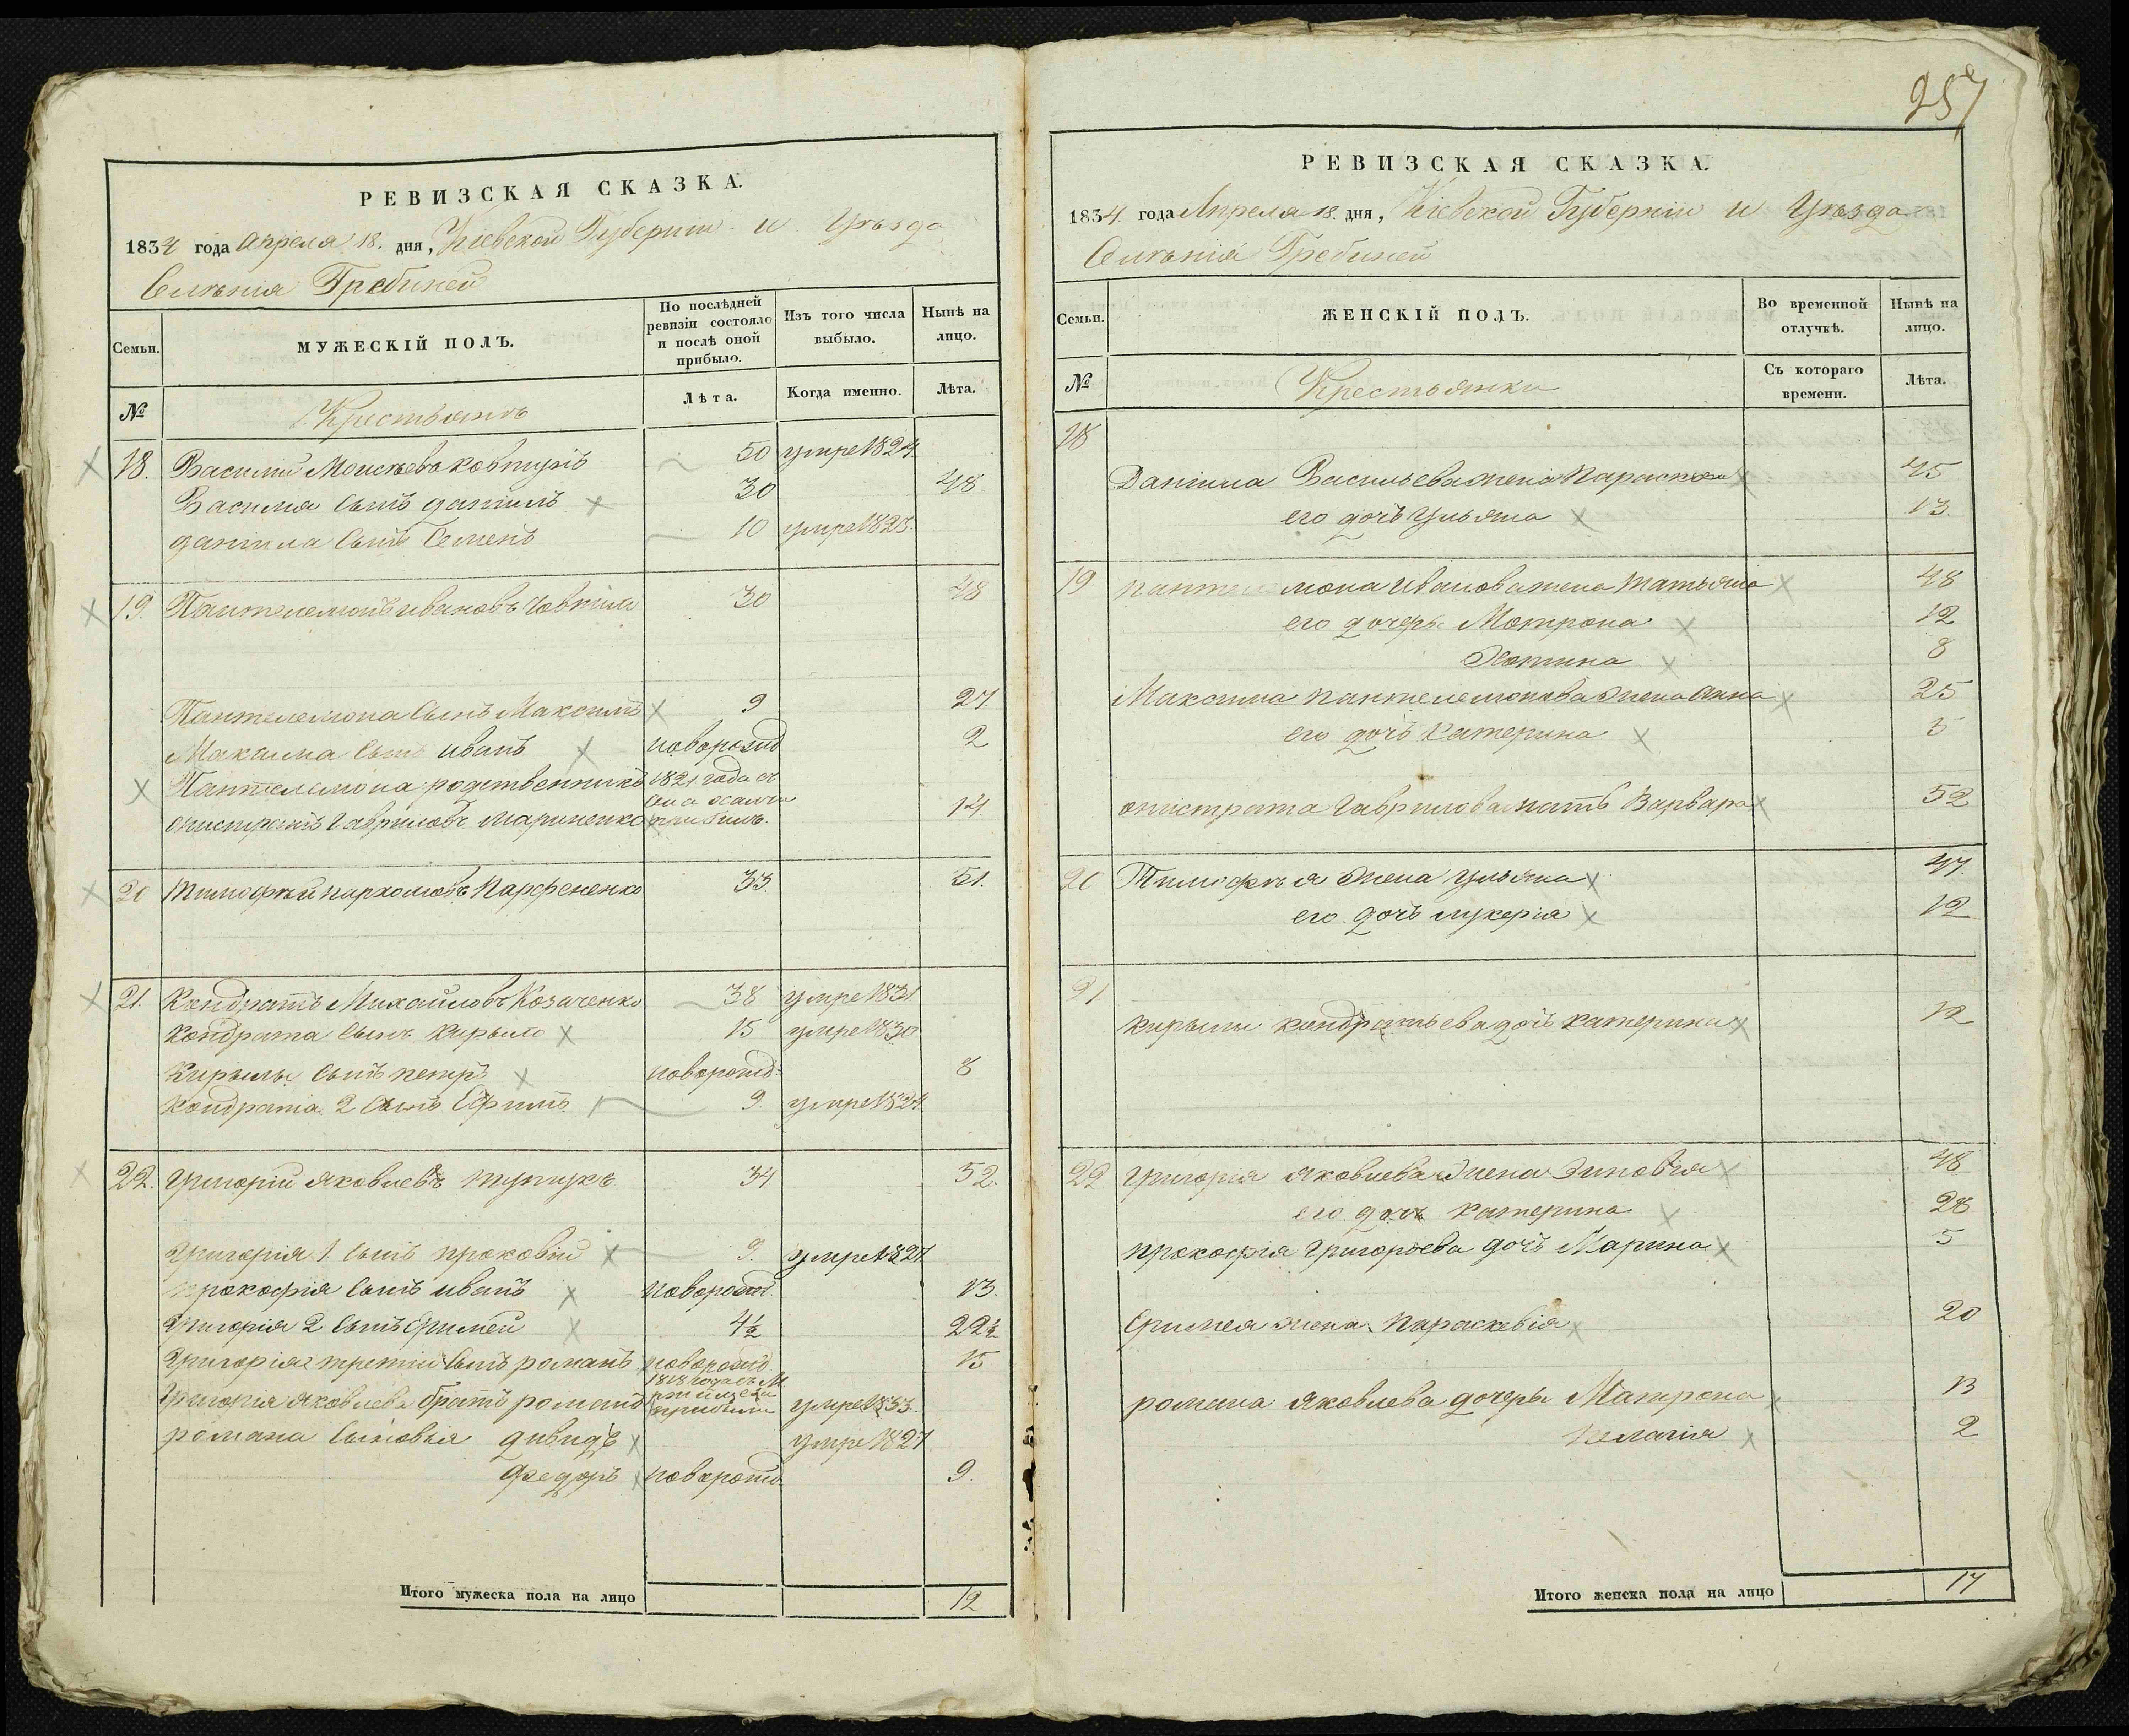 РЕВИЗСКАЯ СКАЗКА.
1834 года Апреля 18. дня, Кіевской Губерніи и Уѣзда
Селѣнія Гребиней
Семьи. МУЖЕСКІЙ ПОЛЪ. По послѣдней ревизіи состояло и послѣ оной прибыло. Изъ того числа выбыло. Нынѣ на лицо.
№ Крестьянъ Лѣта. Когда именно. Лѣта.
18. Василий Моисѣевъ 50 умре 1824
Василия сынъ данилъ 30 48
данила сынъ Семенъ 10 умре
19. Пантелемонъ ивановъ 30 48
Пантелемона сынъ Максимъ 9 27
Максима сынъ иванъ новорожд 2
Пантелемона родственникъ 1821 года
Гавриловъ Мариненко 14
20 тимофѣй пархомовъ Парфененко 33 51.
21. Кондратъ Михайловъ Козаченко 38 умре 1831
Кондрата сынъ Кирыло 15 умре 1830
Кирылы сынъ петръ новорожд: 8
Кондрата 2 сынъ Ефимъ 9. умре 1824
22. Григорій Яковлевъ 34 52.
Григорія 1 сынъ прокофій 9. умре 1827
прокофія сынъ иванъ новорожд. 13.
Григорія 2 сынъ Еримей 4½ 22½
Григорія третий сынъ романъ новорожд 15
Григорія Яковлева братъ романъ 1818 года умре 1833.
романа сыновья давидъ умре 1827
Федоръ новорожд 9.
Итого мужеска пола на лицо 12
257
РЕВИЗСКАЯ СКАЗКА.
1834 года Апреля 18. дня, Кіевской Губерніи и Уѣзда
Селѣнія Гребиней
Семьи. ЖЕНСКІЙ ПОЛЪ. Во временной отлучкѣ. Нынѣ на лицо.
№ Крестьянки Съ котораго времени. Лѣта.
18
Данила Васильева жена Параскева 45
его дочь Ульяна 13
19 пантелемона Иванова жена татьяна 48
его дочери Мотрона 12
8
Максима пантелемонова жена анна 25
его дочь Катерина
Гаврилова мать Варвара 52
20 Тимофѣя жена ульяна 47.
его дочь лукерія 12
21
кирылы кондратьева дочь катерина 12
22 Григорія яковлева жена Зиновія 48
его дочь катерина 28
прокофія григорьева дочь Марина 5
Еримея жена Параскевія 20
романа яковлева дочери Матрона 13
пелагія 2
Итого женска пола на лицо 17